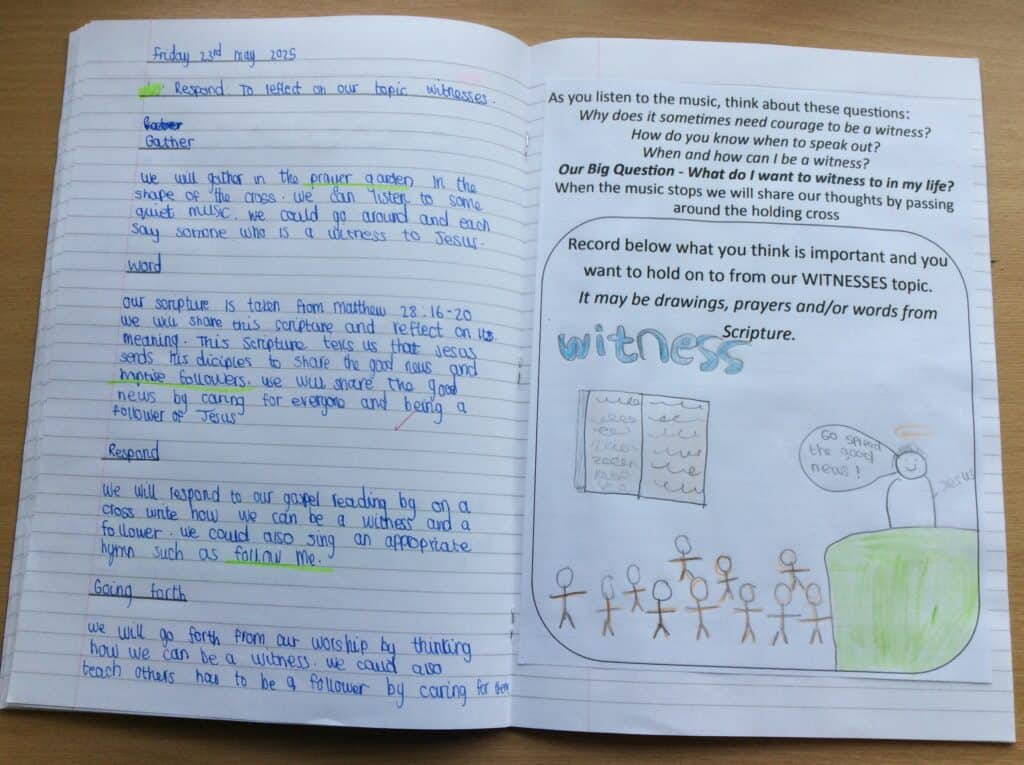 Friday 23rd may 2025
Respond To reflect on our topic witnesses.
Gather
we will gather in the prayer garden in the
shape of the cross. we can listen to some
quiet music. we could go around and each
say somone who is a witness to Jesus.
Word
our scripture is taken from matthew 28:16-20
we will share this scripture and reflect on its
meaning. This scripture tells us that Jesus
sends his diciples to share the good news and
baptise followers. we will share the good
news by caring for everyone and being a
follower of Jesus
Respond
we will respond to our gospel reading by on a
cross write how we can be a witness and a
follower. we could also sing an appropriate
hymn such as follow me.
Going forth
we will go forth from our worship by thinking
how we can be a witness. we could also
teach others how to be a follower by caring for them
As you listen to the music, think about these questions:
Why does it sometimes need courage to be a witness?
How do you know when to speak out?
When and how can I be a witness?
Our Big Question - What do I want to witness to in my life?
When the music stops we will share our thoughts by passing
around the holding cross
Record below what you think is important and you
want to hold on to from our WITNESSES topic.
It may be drawings, prayers and/or words from
Scripture.
witness
GO spread
the good
news!
Jesus